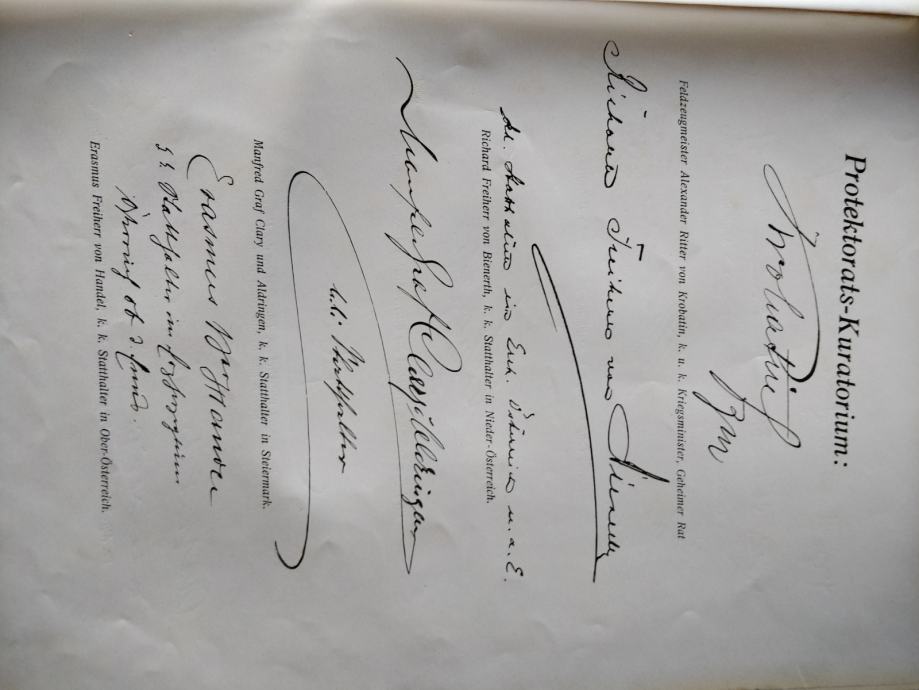 Protektorats-Kuratorium:
Krobatin
FZM
Feldzeugmeister Alexander Ritter von Krobatin, k. u. k. Kriegsminister, Geheimer Rat
Richard Freiherr von Bienerth
k.k. Statthalter in Erzh. Österreich u. d. E.
Richard Freiherr von Bienerth, k. k. Statthalter in Nieder-Österreich.
Manfred Graf Clary u Aldringen
k. k. Statthalter
Manfred Graf Clary und Aldringen, k. k. Statthalter in Steiermark.
Erasmus Handel
k k Statthalter im Erzherzogtum
Österreich ob d Enns.
Erasmus Freiherr von Handel, k. k. Statthalter in Ober-Österreich.